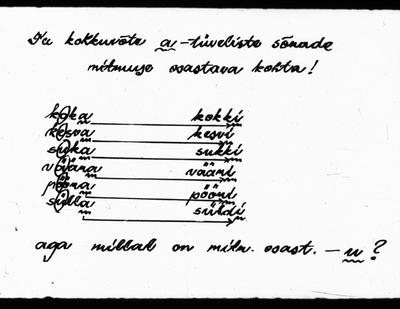 Ja kokkuvõte a-tüveliste sõnade
mitmuse osastava kohta!
koka kokki
kesva kesvi
suka sukki
väära vääri
pööra pööri
sülla süldi
aga millal on mitm. osast. – u?